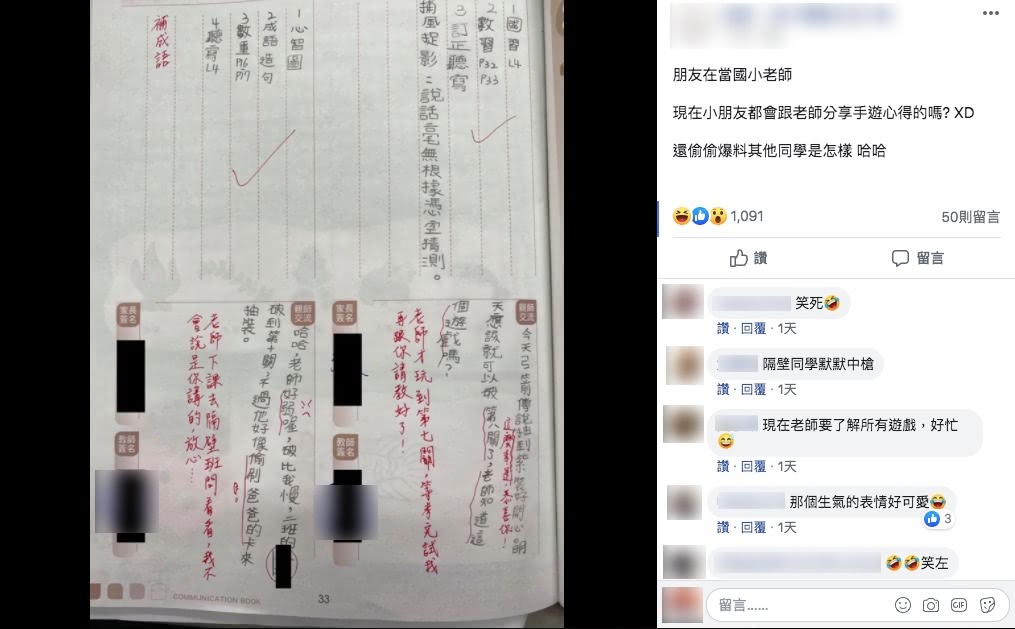 1 國習 L4
2 數習 P32 P33
3 訂正聽寫
捕風捉影：說話毫無根據憑空猜測。
1 心智圖
2 成語造句
3 數重 P16 P17
4 聽寫 L4
補成語
親師交流
今天己蛋前傳說抽到紫裝好開心。明
天應該就可以破第八關了，老師知道這
個遊戲嗎？
家長簽名
教師簽名
老師才玩到第七關，等考完試我
再跟你請教好了！
親師交流
哈哈，老師好弱喔，破比我慢，二班的
破到第十關，不過他好像偷刷爸爸的卡來
抽裝。
家長簽名
教師簽名
老師下課去隔壁班問看看，我不
會說是你講的，放心…
COMMUNICATION BOOK
33
朋友在當國小老師
現在小朋友都會跟老師分享手遊心得的嗎? XD
還偷偷爆料其他同學是怎樣 哈哈
1,091
50則留言
讚
留言
笑死🤣
讚 · 回覆 · 1天
隔壁同學默默中槍
讚 · 回覆 · 1天
現在老師要了解所有遊戲，好忙
😅
讚 · 回覆 · 1天
那個生氣的表情好可愛😂
3
讚 · 回覆 · 1天
🤣🤣笑左
留言......
GIF